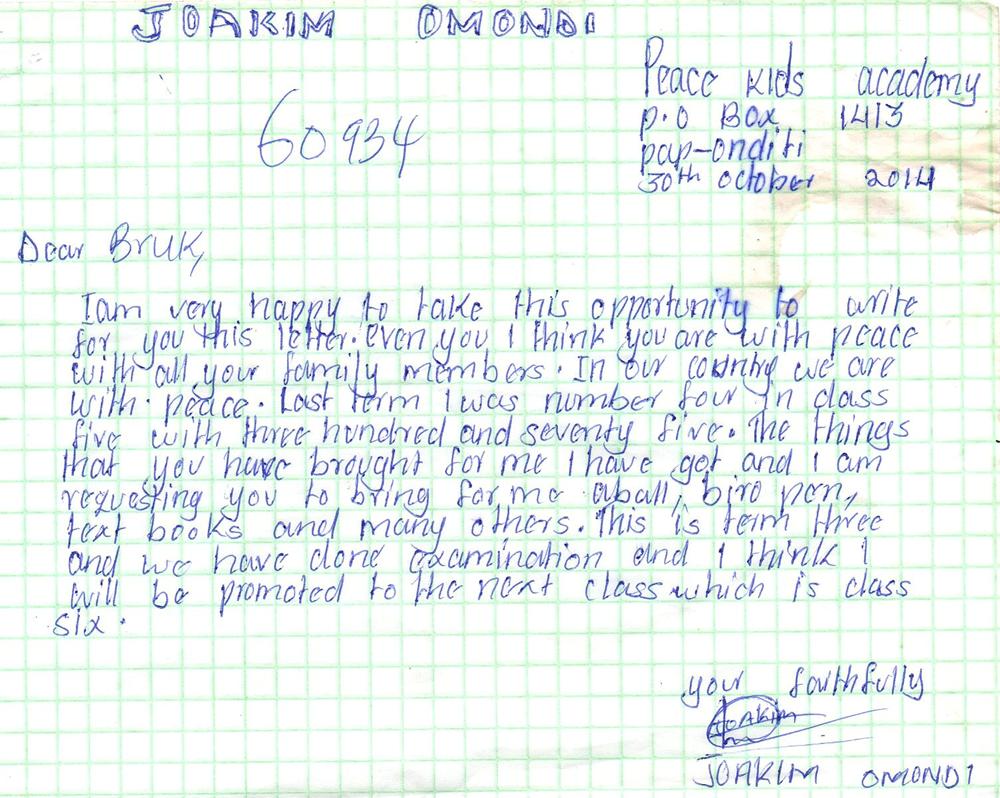 JOAKIM OMONDI
Peace kids academy
60934
p.o Box 1413
pap-onditi
30th october 2014
Dear Bruk,
Iam very happy to take this opportunity to write
for you this letter. even you I think you are with peace
with all your family members. In our country we are
with. peace. Last term I was number four in class
five with three hundred and seventy five. The things
that you have brought for me I have got and I am
requesting you to bring for me aball, biro pen,
text books and many others. This is term three
and we have done examination and I think I
will be promoted to the next class which is class
six.
your faithfully
JOAKIM
JOAKIM OMONDI